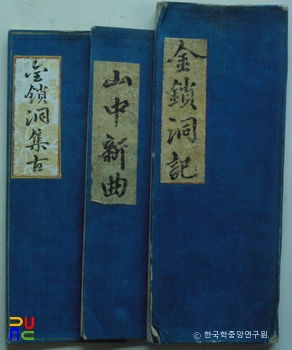 金鎖洞集古
山中新曲
金鎖洞記
PUAC
© 한국학중앙연구원